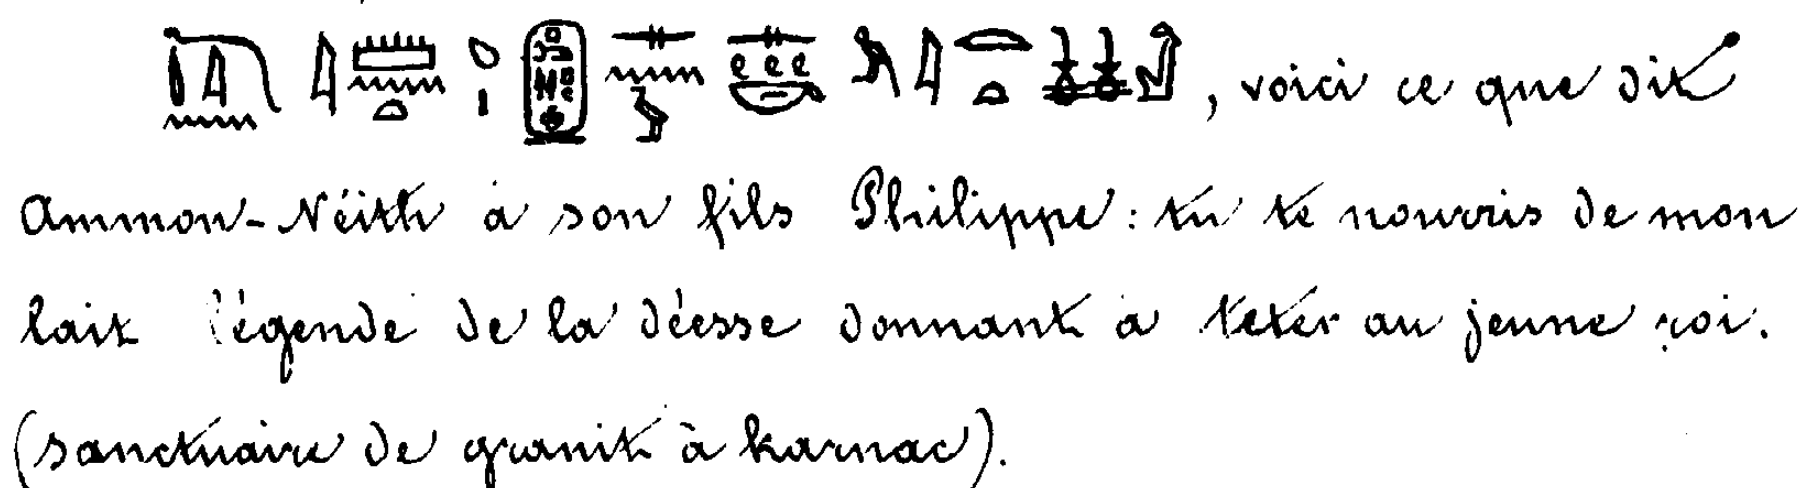 , voici ce que dit
Ammon-Néith à son fils Philippe : tu te nourris de mon
lait légende de la déesse donnant à teter au jeune roi.
(sanctuaire de granit à karnac).